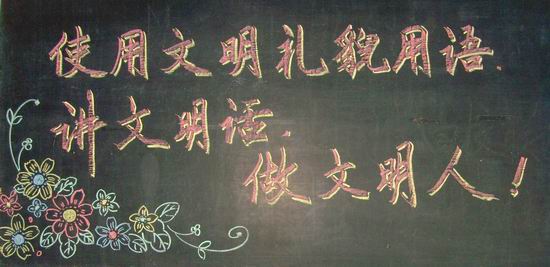 使用文明礼貌用语.
讲文明话.
做文明人!